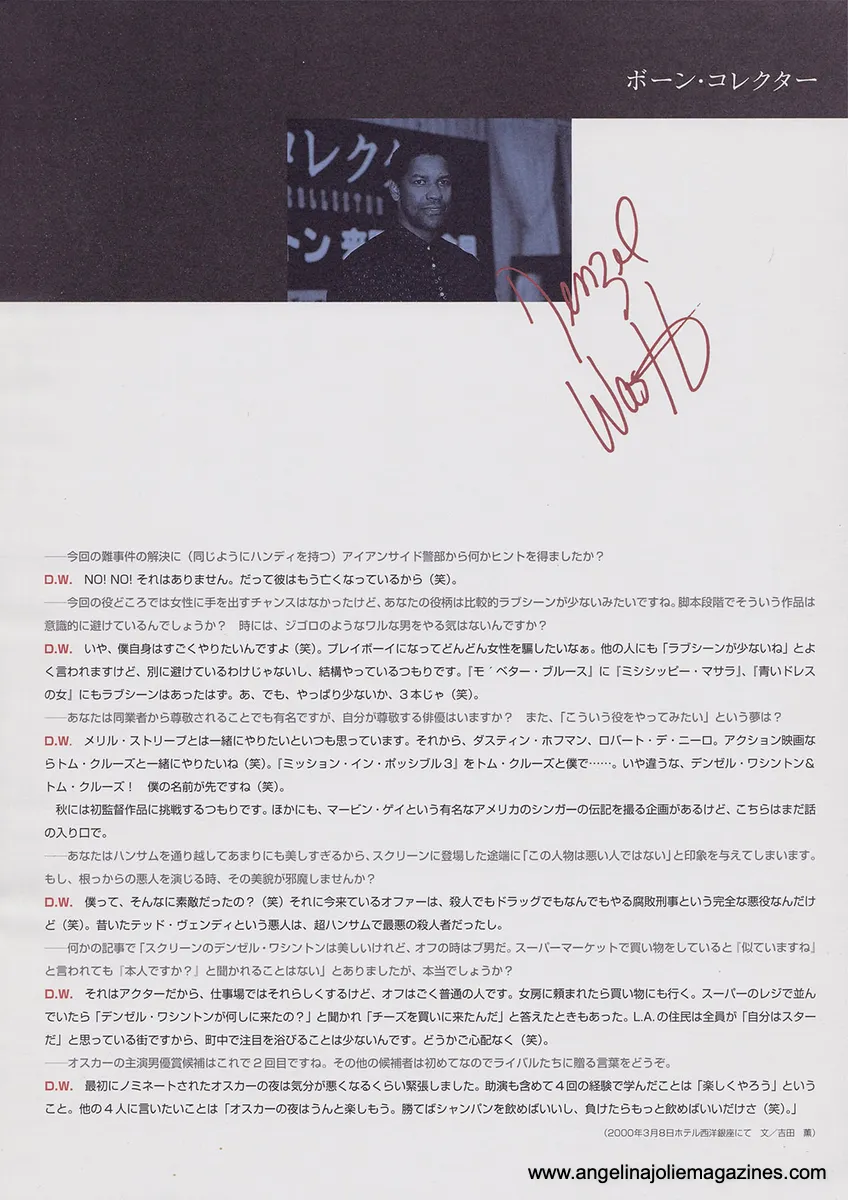 ボーン・コレクター
コレク
Denzel
Wash
――今回の難事件の解決に（同じようにハンディを持つ）アイアンサイド警部から何かヒントを得ましたか？
D.W.　NO! NO! それはありません。だって彼はもう亡くなっているから（笑）。
――今回の役どころでは女性に手を出すチャンスはなかったけど、あなたの役柄は比較的ラブシーンが少ないみたいですね。脚本段階でそういう作品は
意識的に避けているんでしょうか？　時には、ジゴロのようなワルな男をやる気はないんですか？
D.W.　いや、僕自身はすごくやりたいんですよ（笑）。プレイボーイになってどんどん女性を騙したいなぁ。他の人にも「ラブシーンが少ないね」とよ
く言われますけど、別に避けているわけじゃないし、結構やっているつもりです。『モ´ベター・ブルース』に『ミシシッピー・マサラ』、『青いドレス
の女』にもラブシーンはあったはず。あ、でも、やっぱり少ないか、３本じゃ（笑）。
――あなたは同業者から尊敬されることでも有名ですが、自分が尊敬する俳優はいますか？　また、「こういう役をやってみたい」という夢は？
D.W.　メリル・ストリープとは一緒にやりたいといつも思っています。それから、ダスティン・ホフマン、ロバート・デ・ニーロ。アクション映画な
らトム・クルーズと一緒にやりたいね（笑）。『ミッション・イン・ポッシブル３』をトム・クルーズと僕で……。いや違うな、デンゼル・ワシントン＆
トム・クルーズ！　僕の名前が先ですね（笑）。
　秋には初監督作品に挑戦するつもりです。ほかにも、マービン・ゲイという有名なアメリカのシンガーの伝記を撮る企画があるけど、こちらはまだ話
の入り口で。
――あなたはハンサムを通り越してあまりにも美しすぎるから、スクリーンに登場した途端に「この人物は悪い人ではない」と印象を与えてしまいます。
もし、根っからの悪人を演じる時、その美貌が邪魔しませんか？
D.W.　僕って、そんなに素敵だったの？（笑）それに今来ているオファーは、殺人でもドラッグでもなんでもやる腐敗刑事という完全な悪役なんだけ
ど（笑）。昔いたテッド・ヴェンディという悪人は、超ハンサムで最悪の殺人者だったし。
――何かの記事で「スクリーンのデンゼル・ワシントンは美しいけれど、オフの時はブ男だ。スーパーマーケットで買い物をしていると『似ていますね』
と言われても『本人ですか？』と聞かれることはない」とありましたが、本当でしょうか？
D.W.　それはアクターだから、仕事場ではそれらしくするけど、オフはごく普通の人です。女房に頼まれたら買い物にも行く。スーパーのレジで並ん
でいたら「デンゼル・ワシントンが何しに来たの？」と聞かれ「チーズを買いに来たんだ」と答えたときもあった。L.A.の住民は全員が「自分はスター
だ」と思っている街ですから、町中で注目を浴びることは少ないんです。どうかご心配なく（笑）。
――オスカーの主演男優賞候補はこれで２回目ですね。その他の候補者は初めてなのでライバルたちに贈る言葉をどうぞ。
D.W.　最初にノミネートされたオスカーの夜は気分が悪くなるくらい緊張しました。助演も含めて４回の経験で学んだことは「楽しくやろう」という
こと。他の４人に言いたいことは「オスカーの夜はうんと楽しもう。勝てばシャンパンを飲めばいいし、負けたらもっと飲めばいいだけさ（笑）。」
（2000年3月8日ホテル西洋銀座にて　文／吉田　薫）
www.angelinajoliemagazines.com